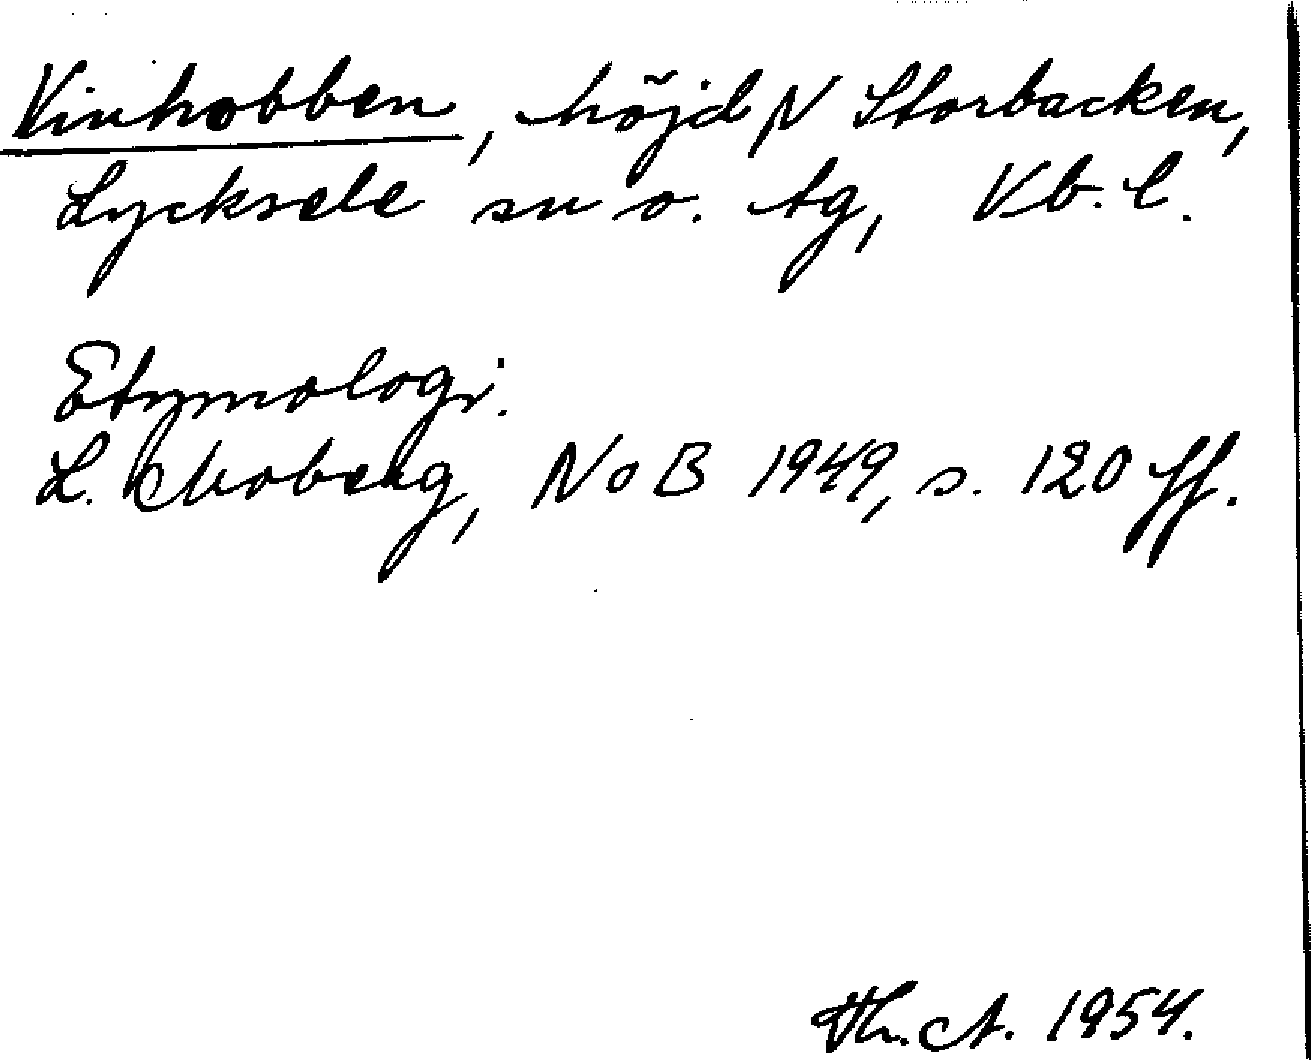 Vinhobben, höjd N Storbacken,
Lycksele sn o. tg, Vb. l.
Etymologi.
L. Moberg, NoB 1949, s. 120 ff.
Th. A. 1954.